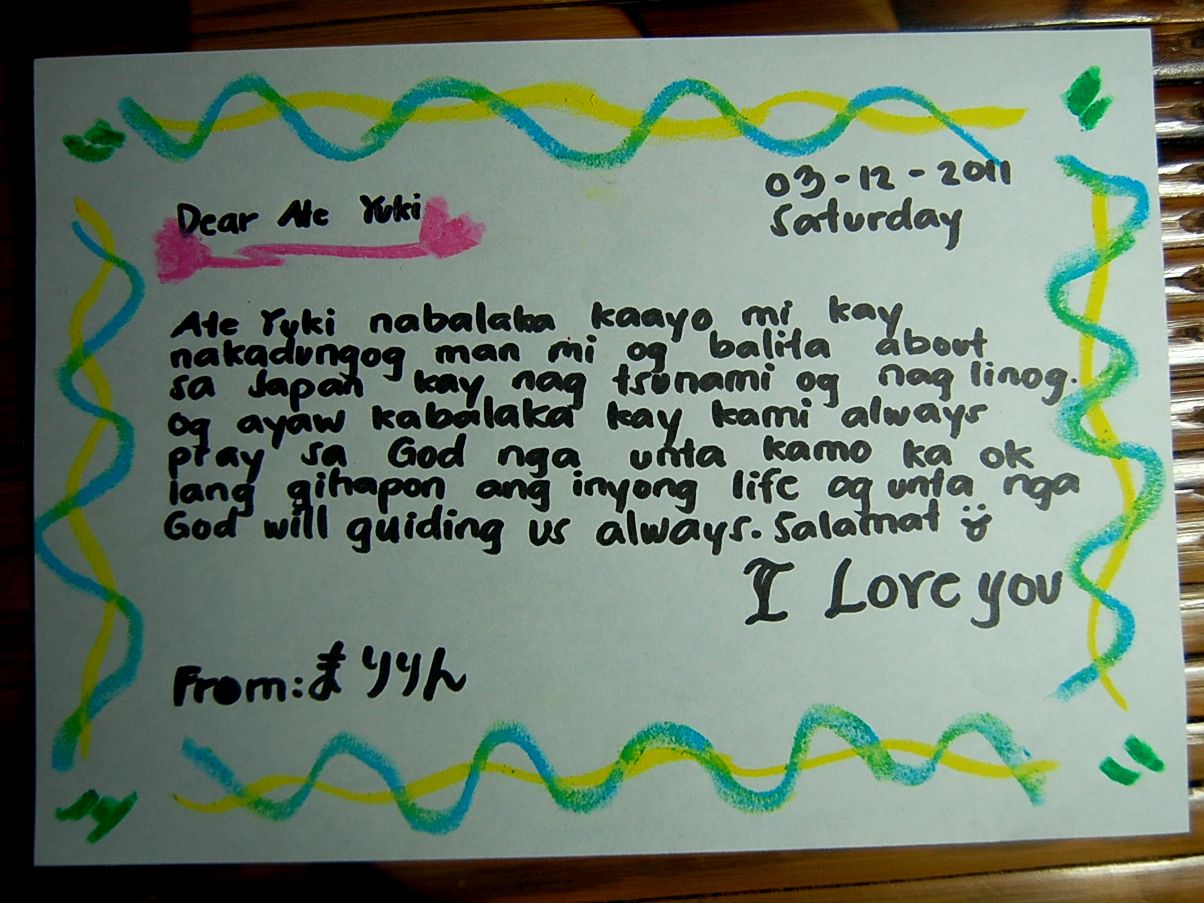 03-12-2011
Saturday
Dear Ate Yuki
Ate Yuki nabalaka kaayo mi kay
nakadungog man mi og balita about
sa Japan kay nag tsunami og nag linog.
og ayaw kabalaka kay kami always
pray sa God nga unta kamo ka ok
lang gihapon ang inyong life og unta nga
God will guiding us always. Salamat
I Love you
From: まりりん